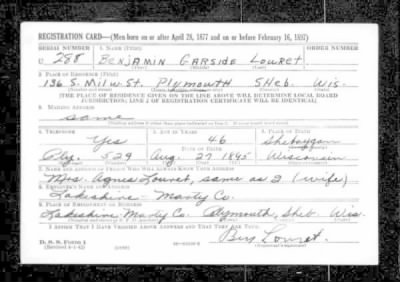 REGISTRATION CARD—(Men born on or after April 28, 1877 and on or before February 16, 1897)
SERIAL NUMBER 1. NAME (Print) ORDER NUMBER
U 288 BENJAMIN GARSIDE LOURET
2. PLACE OF RESIDENCE (Print)
136 S. Milw. St. Plymouth Sheb. Wis.
(THE PLACE OF RESIDENCE GIVEN ON THE LINE ABOVE WILL DETERMINE LOCAL BOARD
JURISDICTION; LINE 2 OF REGISTRATION CERTIFICATE WILL BE IDENTICAL)
3. MAILING ADDRESS
same
4. TELEPHONE 5. AGE IN YEARS 6. PLACE OF BIRTH
Yes 46 Sheboygan
DATE OF BIRTH
Ply. 529 Aug. 27 1895 Wisconsin
7. NAME AND ADDRESS OF PERSON WHO WILL ALWAYS KNOW YOUR ADDRESS
Mrs. Agnes Louret, same as 2 (wife)
8. EMPLOYER'S NAME AND ADDRESS
Lakeshire - Marty Co.
9. PLACE OF EMPLOYMENT OR BUSINESS
Lakeshire Marty Co. Plymouth, Sheb. Wis.
I AFFIRM THAT I HAVE VERIFIED ABOVE ANSWERS AND THAT THEY ARE TRUE.
D. S. S. Form 1
(Revised 4-1-42)
Benj Louret.